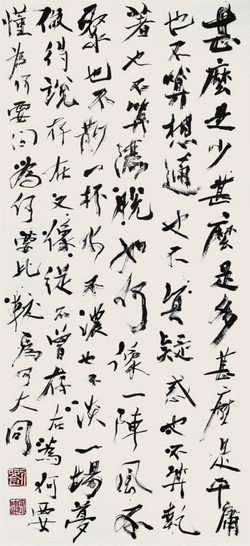 甚麼是少甚麼是多甚麼是平庸
也不算想通也不算疑惑也不算執
著也不算灑脫如何像一陣風不
聚也不散一杯水不濃也不淡一場夢
做得說存在又像從不曾存在為何要
懂為何要問為何要比較為何大同